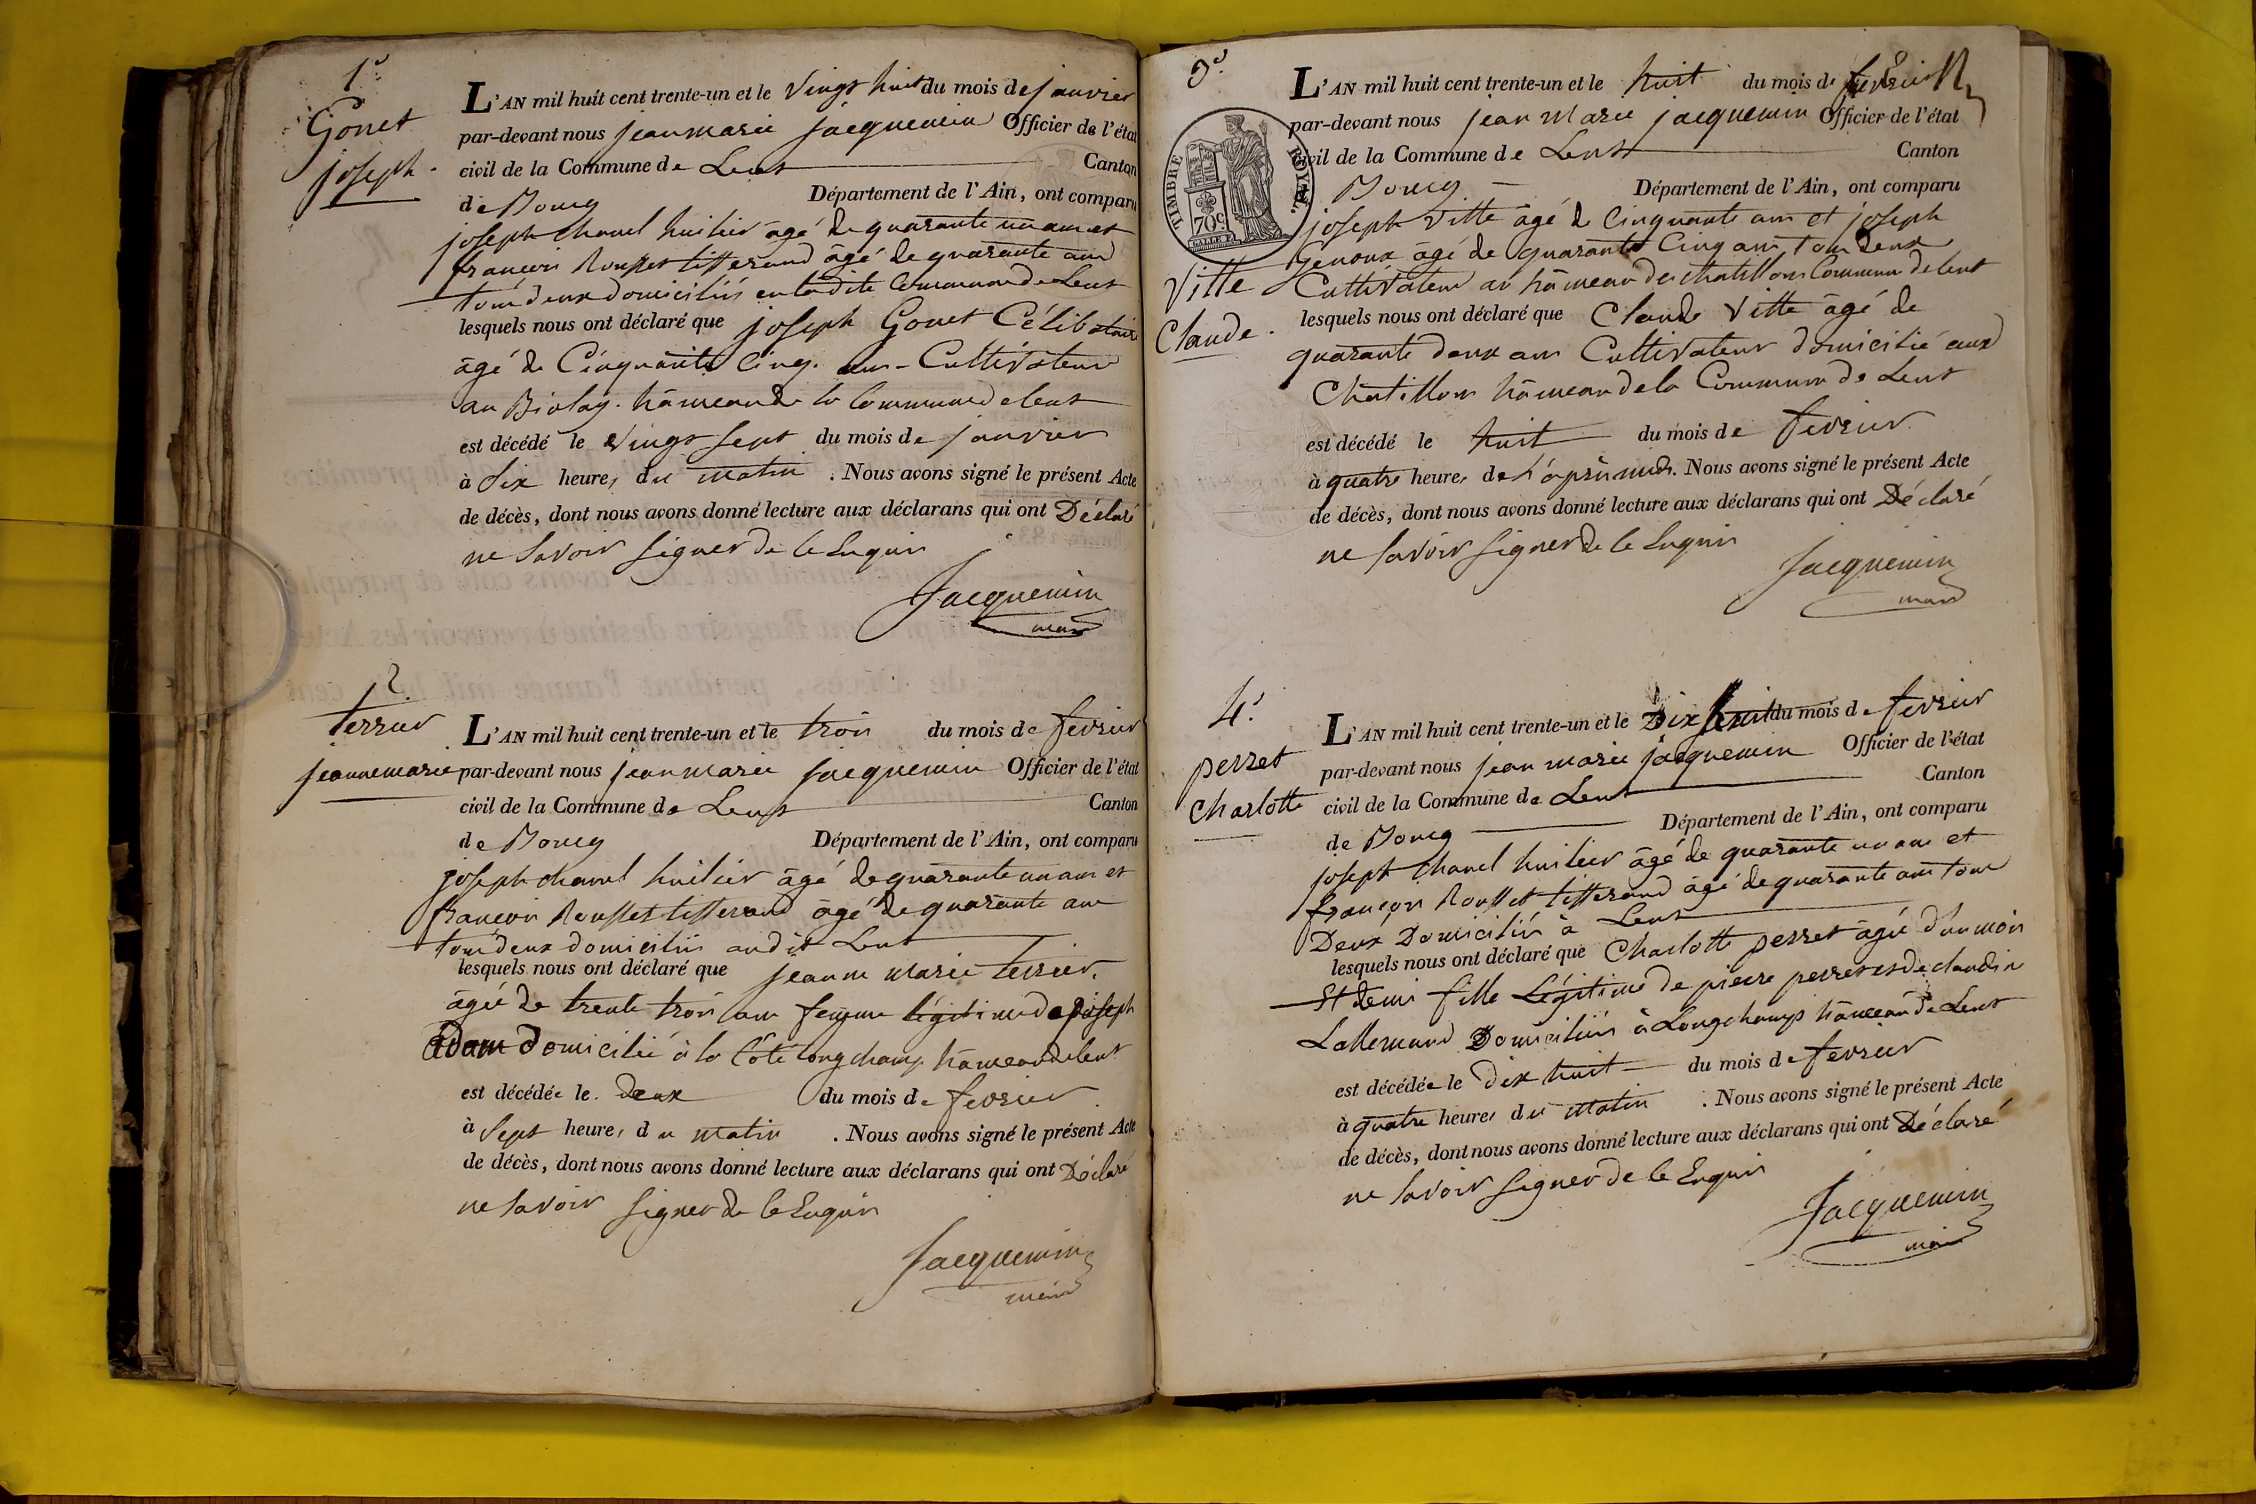 1e
Gonet
joseph.
L'AN mil huit cent trente-un et le vingt huit du mois de janvier
par-devant nous jean marie jacquemin Officier de l'état
civil de la Commune de Lent Canton
de Bourg Département de l'Ain, ont comparu
joseph chanel huilier âgé de quarante un ans et
françois Rousset tisserand âgé de quarante ans
tous deux domiciliés en la dite Commune de Lent
lesquels nous ont déclaré que joseph Gonet Célibataire
âgé de Cinquante Cinq. ans - Cultivateur
au Biolay. hâmeau de la Commune de lent
est décédé le vingt sept du mois de janvier
à Six heures du matin. Nous avons signé le présent Acte
de décès, dont nous avons donné lecture aux déclarans qui ont Déclaré
ne Savoir Signer de le Enquis
Jacquemin
maire
2.
terrier
jeanne marie
L'AN mil huit cent trente-un et le trois du mois de fevrier
par-devant nous jean marie jacquemin Officier de l'état
civil de la Commune de Lent Canton
de Bourg Département de l'Ain, ont comparu
joseph chanel huilier âgé de quarante un ans et
françois Rousset tisserand âgé de quarante ans
tous deux domiciliés audit Lent
lesquels nous ont déclaré que jeanne marie terrier.
âgée de trente trois ans femme légitime de joseph
adam domicilié à la Côte longchamp hâmeau de lent
est décédée le. deux du mois de fevrier
à Sept heures du matin. Nous avons signé le présent Acte
de décès, dont nous avons donné lecture aux déclarans qui ont Déclaré
ne Savoir Signer de le Enquis
Jacquemin
maire
3e.
TIMBRE ROYAL.
70c.
Vitte
Claude.
L'AN mil huit cent trente-un et le huit du mois de fevrier
par-devant nous jean Marie jacquemin Officier de l'état
civil de la Commune de Lent Canton
Bourg Département de l'Ain, ont comparu
joseph Vitte âgé de Cinquante ans et joseph
genoux âgé de quarante Cinq ans tous deux
Cultivateur au hâmeau des chatillons Commune de lent
lesquels nous ont déclaré que Claude Vitte âgé de
quarante deux ans Cultivateur domicilié aux
Chatillons hâmeau de la Commune de Lent
est décédé le huit du mois de fevrier.
à quatre heures de l'après midi. Nous avons signé le présent Acte
de décès, dont nous avons donné lecture aux déclarans qui ont Déclaré
ne Savoir Signer de le Enquis
Jacquemin
maire
4e.
perret
Charlotte
L'AN mil huit cent trente-un et le Dix huit du mois de fevrier
par-devant nous jean marie jacquemin Officier de l'état
civil de la Commune de Lent Canton
de Bourg Département de l'Ain, ont comparu
joseph Chanel huilier âgé de quarante un ans et
françois Rousset tisserand âgé de quarante ans tous
Deux Domiciliés à Lent
lesquels nous ont déclaré que Charlotte perret âgée d'un mois
Et demi fille Légitime de pierre perret et de claudine
Lallemand Domiciliés à Longchamps hâmeau de Lent
est décédée le dix huit du mois de fevrier
à quatre heures du matin. Nous avons signé le présent Acte
de décès, dont nous avons donné lecture aux déclarans qui ont Déclaré
ne Savoir Signer de le Enquis
Jacquemin
maire